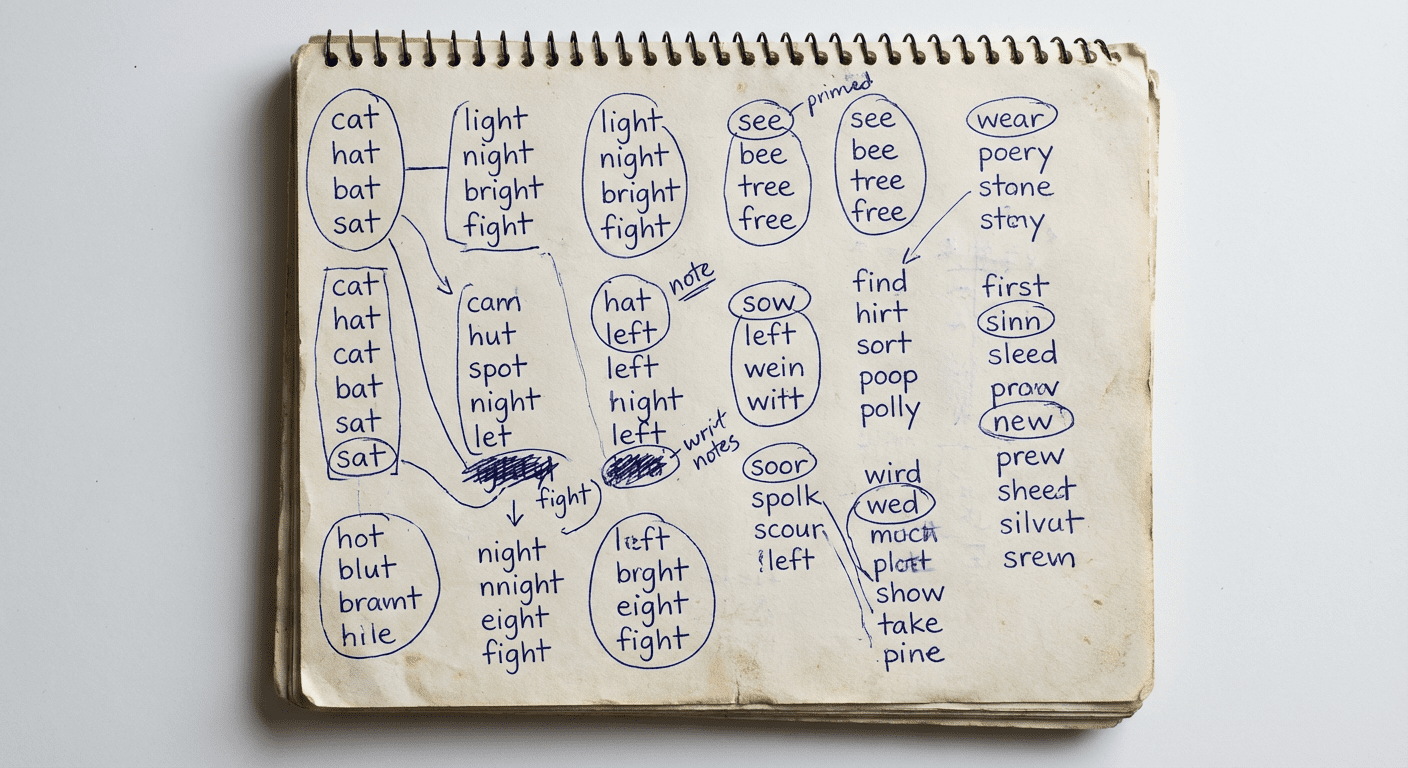 cat
hat
bat
sat
light
night
bright
fight
light
night
bright
fight
primed
see
bee
tree
free
see
bee
tree
free
wear
poery
stone
cat
hat
cat
bat
sat
sat
cam
hut
spot
night
let
fight
note
hat
left
left
hight
left
writ
notes
sow
left
wein
witt
find
hirt
sort
poop
polly
first
sinn
sleed
new
prew
sheet
silvut
srewn
hot
blut
bramt
hile
night
nnight
eight
fight
left
brght
eight
fight
soor
spolk
scour
left
wird
wed
show
take
pine